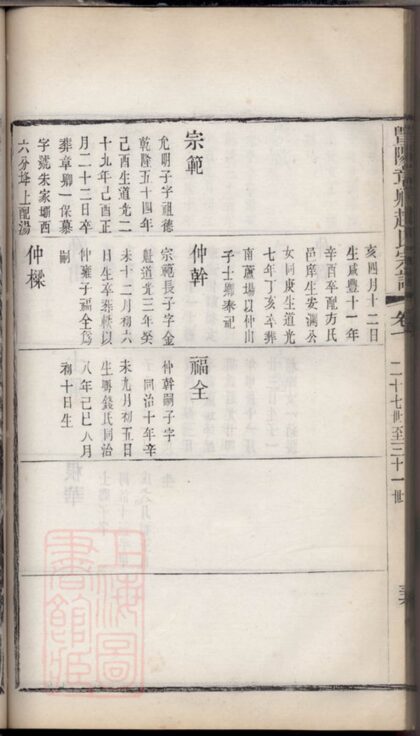 暨陽章卿趙氏宗譜
二十七世至三十一世
宗範
允明子字祖德
乾隆五十四年
己酉生道光二
十九年己酉正
月二十二日卒
葬章卿一保墓
字號朱家壩西
六分上配湯
亥四月十二日
生咸豐十一年
辛酉卒配方氏
邑庠生安瀾公
女同庚生道光
七年丁亥卒葬
南蘆場以仲山
子士卿奉祀
仲幹
宗範長子字金
魁道光三年癸
未十二月初六
日生卒葬軼以
仲雍子福全為
嗣
仲樑
福全
仲幹嗣子字
同治十年辛
未九月初五日
生娉錢氏同治
八年己巳八月
初十日生
上海圖
書館藏